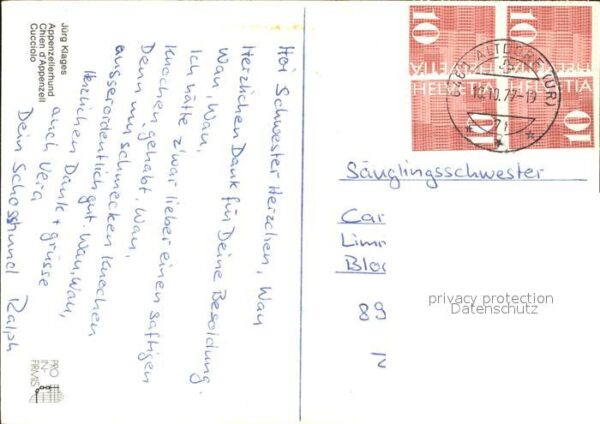 Jürg Klages
Appenzellerhund
Chien d'Appenzell
Cucciolo
Hoi Schwester Herzchen, Wau
Herzlichen Dank für Deine Besoldung.
Wau, Wau,
Ich hätte z'war lieber einen saftigen
Knochen gehabt. Wau,
Denn mir schmecken Knochen
ausserordentlich gut. Wau, Wau,
Herzlichen Dank + grüsse
auch Vera
Dein Schosshund Ralph
PRO
IN-
FIRMIS
10
10
HELVETIA
HELVETIA
10
10
ALTDORF (UR)
10.10.77-19
Säuglingsschwester
Car
Limm
Bloc
89
N
privacy protection
Datenschutz